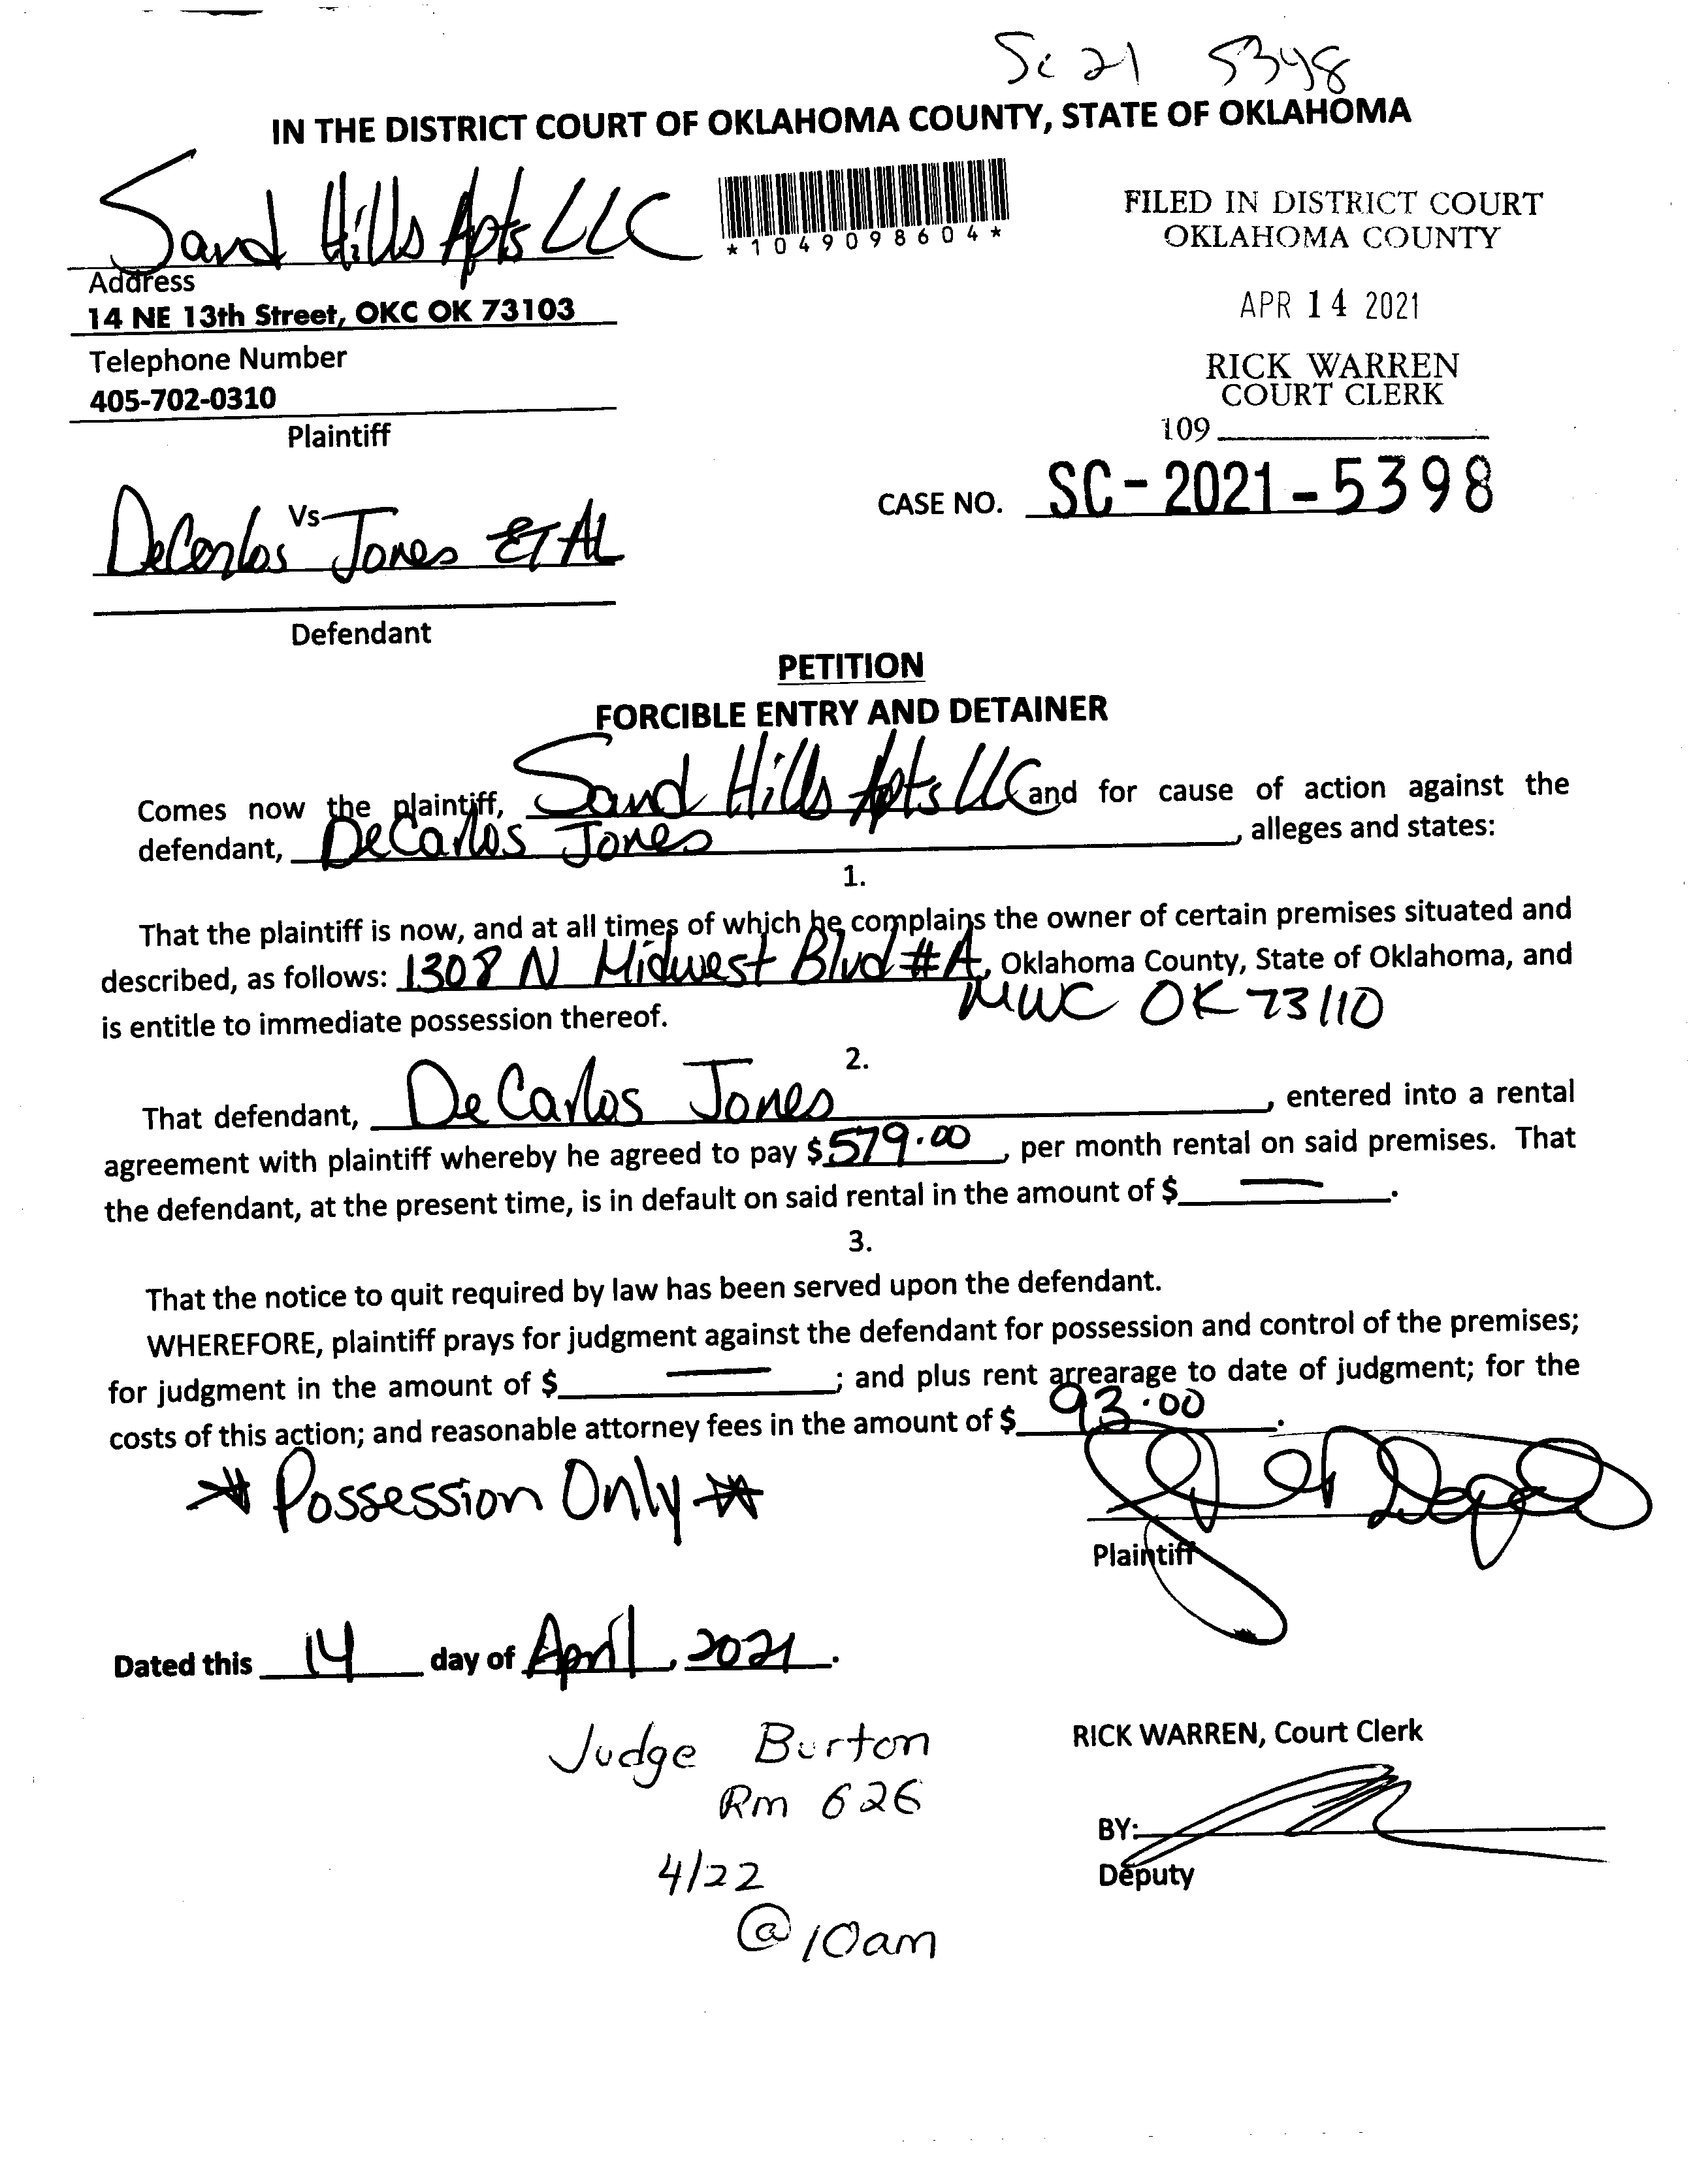 Sc 21 5398
IN THE DISTRICT COURT OF OKLAHOMA COUNTY, STATE OF OKLAHOMA
Sand Hills Apts LLC
*1049098604*
FILED IN DISTRICT COURT
OKLAHOMA COUNTY
Address
14 NE 13th Street, OKC OK 73103
APR 14 2021
Telephone Number
405-702-0310
RICK WARREN
COURT CLERK
Plaintiff
109
CASE NO. SC-2021-5398
Vs
DeCarlos Jones ET AL
Defendant
PETITION
FORCIBLE ENTRY AND DETAINER
Comes now the plaintiff, Sand Hills Apts LLC and for cause of action against the
defendant, DeCarlos Jones, alleges and states:
1.
That the plaintiff is now, and at all times of which he complains the owner of certain premises situated and
described, as follows: 1308 N Midwest Blvd #A, Oklahoma County, State of Oklahoma, and
MWC OK 73110
is entitle to immediate possession thereof.
2.
That defendant, DeCarlos Jones, entered into a rental
agreement with plaintiff whereby he agreed to pay $579.00, per month rental on said premises. That
the defendant, at the present time, is in default on said rental in the amount of $ — .
3.
That the notice to quit required by law has been served upon the defendant.
WHEREFORE, plaintiff prays for judgment against the defendant for possession and control of the premises;
for judgment in the amount of $ — ; and plus rent arrearage to date of judgment; for the
costs of this action; and reasonable attorney fees in the amount of $ 93.00.
* Possession Only *
Plaintiff
Dated this 14 day of April, 2021.
Judge Burton
Rm 626
4/22
@ 10am
RICK WARREN, Court Clerk
BY:
Deputy